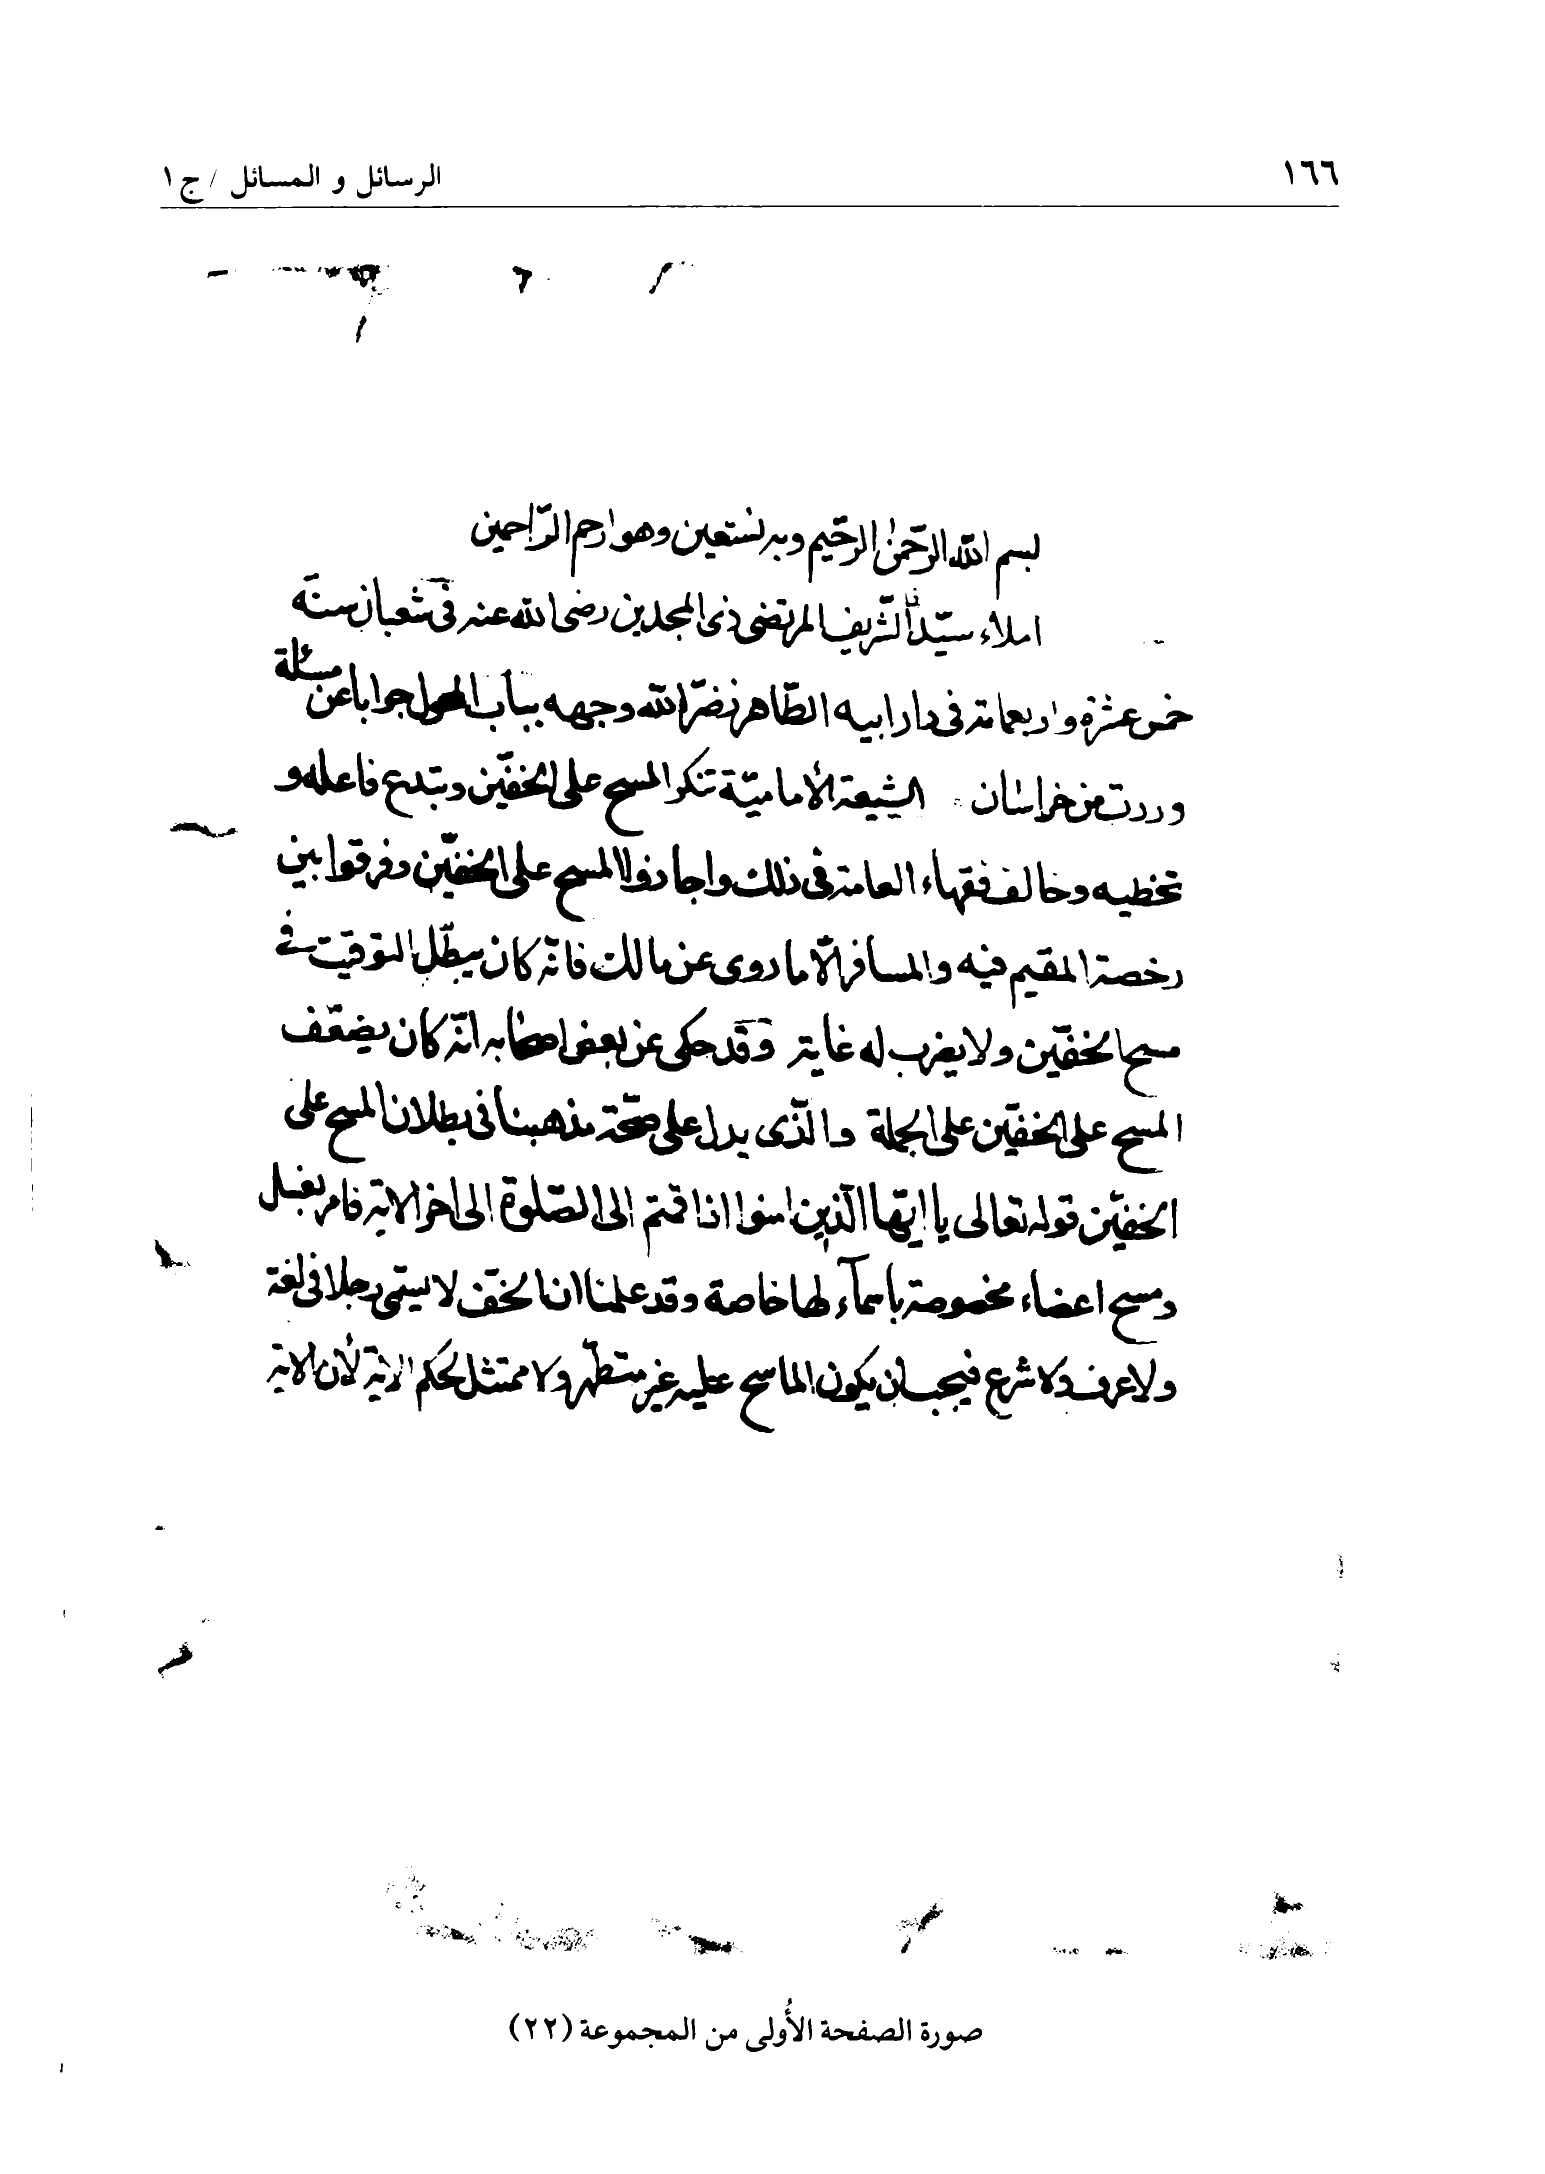 ١٦٦
الرسائل و المسائل / ج ١
بسم الله الرّحمن الرحّيم وبه نستعين وهو ارحم الرّاحمين
املاء سيّدنا الشّريف المرتضى ذى المجدين رضى الله عنه فى شعبان سنة
خمس عشرة واربعمائة فى دار ابيه الطّاهر نضّر الله وجهه بباب المحول جوابا عن مسئلة
وردت من خراسان الشيعة الأماميّة تنكر المسح على الخفّين وتبدع فاعله و
تخطيه وخالف فقهاء العامة فى ذلك واجازوا المسح على الخفّين وفرقوا بين
رخصة المقيم فيه والمسافر الّا ما روى عن مالك فانّه كان يبطّل التوقيت فى
مسح الخفّين ولا يضرب له غاية وقد حكى عن بعض اصحابه انّه كان يضعّف
المسح على الخفّين على الجملة والّذى يدل على صحّة مذهبنا فى بطلان المسح على
الخفيّن قوله تعالى يا ايّها الّذين امنوا اذا قمتم الى الصّلوة الى اخر الاية فامر بغسل
ومسح اعضاء مخصوصة بأسمآء لها خاصة وقد علمنا ان الخفّ لا يسمّى رجلا فى لغة
ولا عرف ولا شرع فيجب ان يكون الماسح عليه غير متطّهر ولا ممتثل لحكم الاية لأن الاية
صورة الصفحة الأُولى من المجموعة (٢٢)